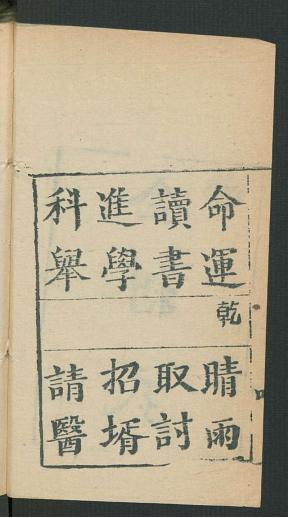 命運
讀書
進學
科舉
乾
晴雨
取討
招壻
請醫